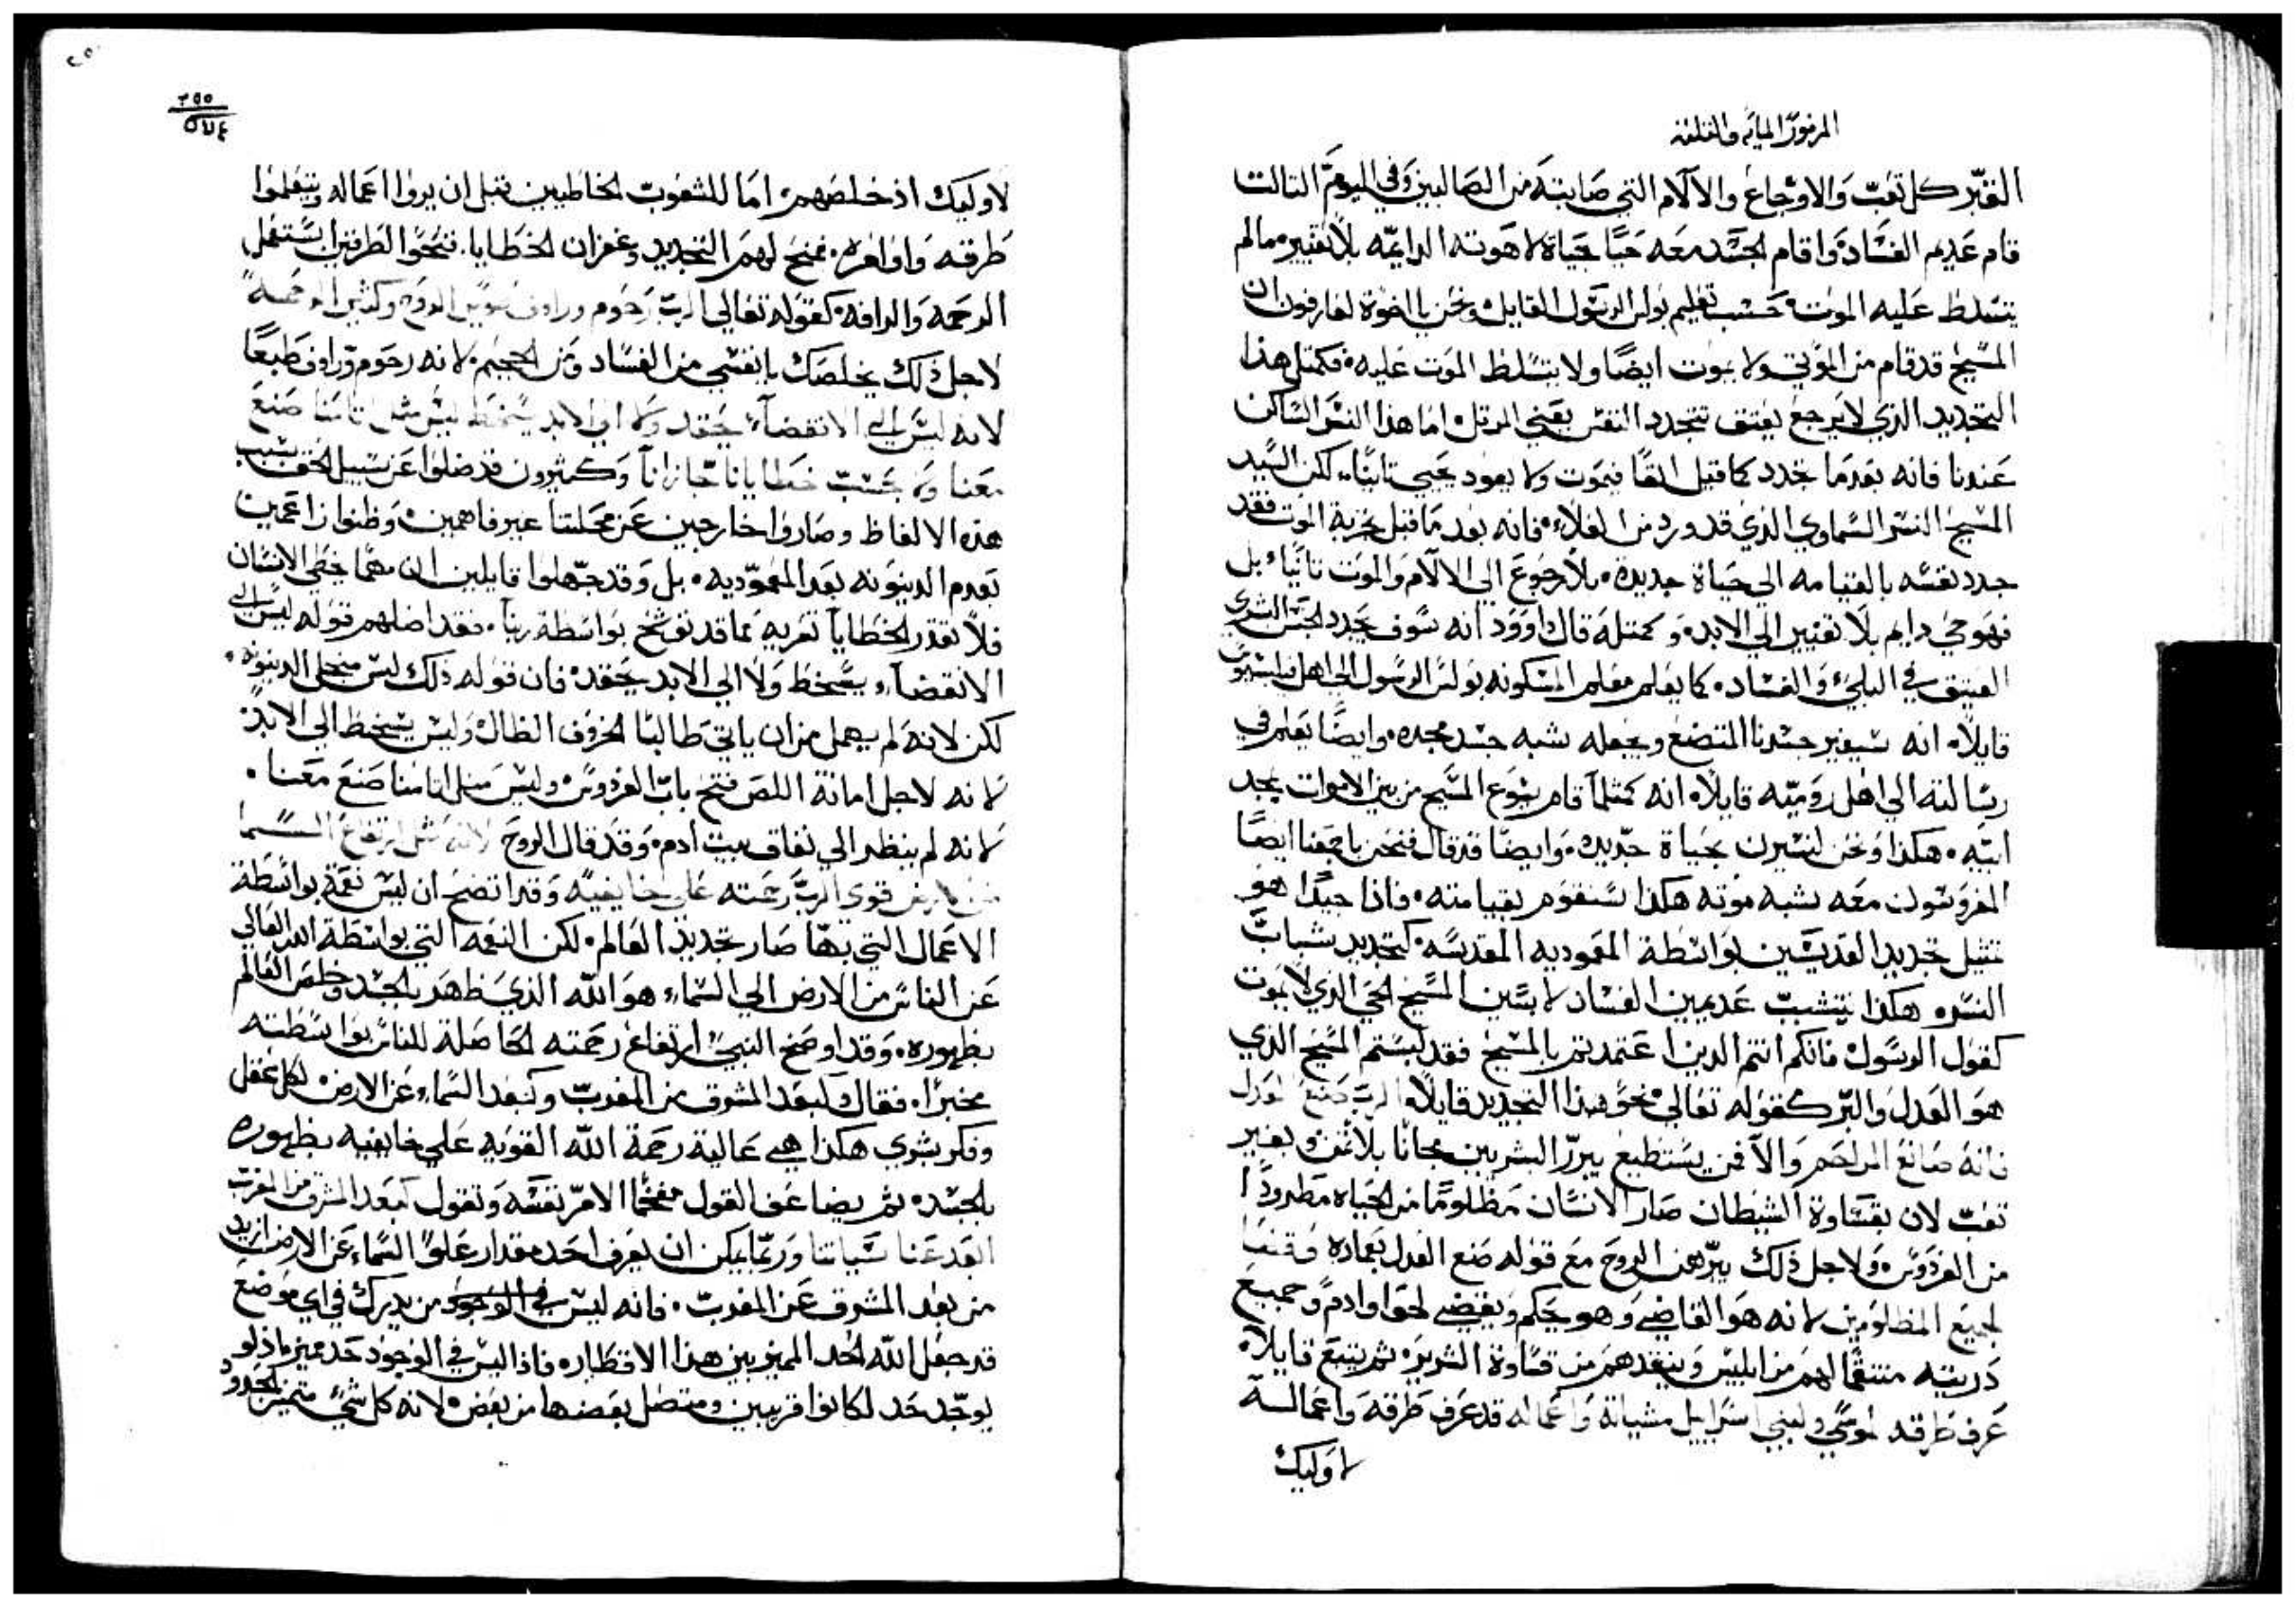 المزمور الماية والتلته
القبر كل تعب والاوجاع والآلام التي صابته من الصالبين وفي اليوم التالت
قام عديم الفساد واقام الجسد معه حيًا بحياة لاهوته الدايمه بلا تغيير مما لم
يتسلط عليه الموت حسب تعليم بولس الرسول القايل ونحن يا اخوة لعارفون ان
المسيح قد قام من الموتي ولا يموت ايضًا ولا يتسلط الموت عليه فكمتل هذا
التجديد الذي لا يرجع يعتق تتجدد النفس يعني المرتل اما هذا النسر الساكن
عندنا فانه بعدما تجدد كما قيل انفًا فيموت ولا يعود يحيي تانيًا لكن السيد
المسيح النسر السماوي الذي قد ورد من العلاء فانه بعد ما قبل تجربة الموت فقد
جدد نفسه بالقيامه الي حياة جديدة بلا رجوع الي الآلام والموت تانيًا بل
فهو حي دايم بلا تغيير الي الابد وكمتله قال داوود انه سوف يجدد الجنس البشري
العتيق في البلي والفساد كما يعلم معلم المسكونه بولس الرسول الي اهل فيلبسيوس
قايلًا انه سيغير جسدنا المتضع ويجعله بشبه جسد مجده وايضًا يعلم في
رسالته الي اهل روميّه قايلًا انه كمتلما قام يسوع المسيح من بين الاموات بمجد
ابيه هكذا ونحن لنسيرن بحياة جديده وايضًا قد قال فنحن باجمعنا ايضًا
المغروسون معه بشبه موته هكذا سنقوم بقيامته فاذا جيدًا هو
تمثيل تجديد القديسين بواسطة المعموديه المقدسه كتجديد شباب
النسر هكذا يتشبب عديمين الفساد لابسين المسيح الحي الذي لا يموت
كقول الرسول فانكم انتم الذين اعتمدتم بالمسيح فقد لبستم المسيح الذي
هو العدل والبر كقوله تعالي نحو هذا التجديد قايلًا الرب صنع العدل
فانه صانع المراحم والا فمن يستطيع يبرر البشريين مجانًا بلا ثمن وبغير
تعب لان بقساوة الشيطان صار الانسان مظلومًا من الحياه مطرودًا
من الفردوس ولاجل ذلك يبرهن الروح مع قوله صنع العدل بعماده وقضا
لجميع المظلومين لانه هو القاضي وهو يحكم ويقضي لحوا وادم وجميع
ذريته منتقمًا لهم من ابليس وينقدهم من قساوة الشرير ثم يتبع قايلًا
عرف طرقه لموسي ولبني اسراييل مشياته واعماله قد عرف طرقه واعماله
لاوليك
٢٥٥
٥٧٤
لاوليك اذ خلصهم اما للشعوب الخاطيين قبل ان يروا اعماله ويتعلموا
طرقه واوامره فمنح لهم التجديد وغفران الخطايا فنحوا الطرفين استعمل
الرحمه والرافه كقوله تعالي الرب رحوم وراوف طويل الروح وكتير الرحمة
لاجل ذلك يخلصك يا نفسي من الفساد ومن الجحيم لانه رحوم وراوف طبعًا
لانه ليس الي الانقضاء يحقد ولا الي الابد يسخط ليس مثل اتامنا صنع
معنا ولا بحسب خطايانا جازانا وكثيرون قد ضلوا عن سبيل الحق بسبب
هذه الالفاظ وصاروا خارجين عن محلتنا غير فاهمين وظنوا زاعمين
بعدم الدينونه بعد المعموديه بل وقد جهلوا قايلين ان مهما خطي الانسان
فلا تقدر الخطايا تعريه عما قد توشح بواسطة ربنا فقد اضلهم قوله ليس الي
الانقضاء يسخط ولا الي الابد يحقد فان قوله ذلك ليس من اجل الدينونه
لكن لانه لم يهمل من ان ياتي طالبًا الخروف الظال وليس يسخط الي الابد
لانه لاجل امانة اللص فتح باب الفردوس وليس مثل اتامنا صنع معنا
لانه لم ينظر الي نفاق بيت ادم وقد قال الروح لانه مثل ارتفاع السما
من الارض قوي الرب رحمته علي خايفيه وقد اتضح ان ليس نعمة بواسطة
الاعمال التي بها صار تجديد العالم لكن النعمه التي بواسطة الله العالي
عن الناس من الارض الي السماء هو الله الذي ظهر بالجسد وخلص العالم
بظهوره وقد اوضح النبي ارتفاع رحمته الحاصلة للناس بواسطته
مخبرًا فقال كبعد المشرق من المغرب وكبعد السماء عن الارض لكل عقل
وفكر بشري هكذا هي عالية رحمة الله القويه علي خايفيه بظهوره
بالجسد ثم يضاعف القول مفخمًا الامر نفسه وتقول كبعد المشرق من المغرب
ابعد عنا سياتنا وربما يمكن ان يعرف احد مقدار علو السماء عن الارض ازيد
من بعد المشرق عن المغرب فانه ليس في الوجود من يدرك في اي موضع
قد جعل الله الحد المميز بين هذا الاقطار فاذا ليس في الوجود حد مميز اذ لو
يوجد حد لكانوا قريبين ومتصل بعضها من بعض لانه كل شي متميز الحدود